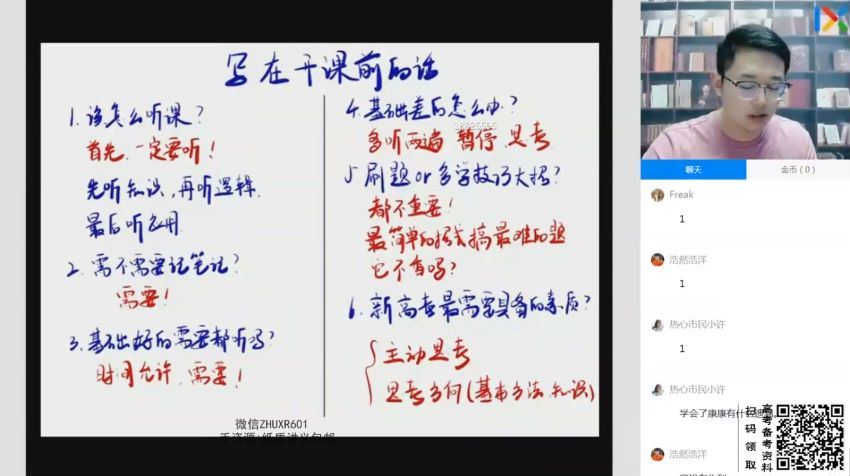 写在开课前的话
1. 该怎么听课？
首先，一定要听！
先听知识，再听逻辑，
最后听应用
2. 需不需要记笔记？
需要！
3. 基础好的需要都听吗？
时间允许，需要！
4. 基础差的怎么办？
多听两遍 暂停 思考
5 刷题 or 多学技巧大招？
都不重要！
最简单的招式搞最难的题
它不香吗？
6. 新高考最需要具备的素质？
主动思考
思考方向(基本方法 知识)
微信ZHUXR601
聊天
金币（0）
Freak
1
浩然浩洋
1
热心市民小许
1
热心市民小许
学会了康康有什么遗漏
浩然浩洋
高考备考资料
扫码领取